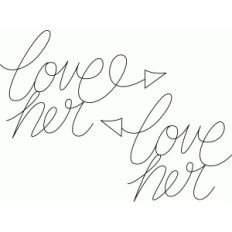 love
her
love
her